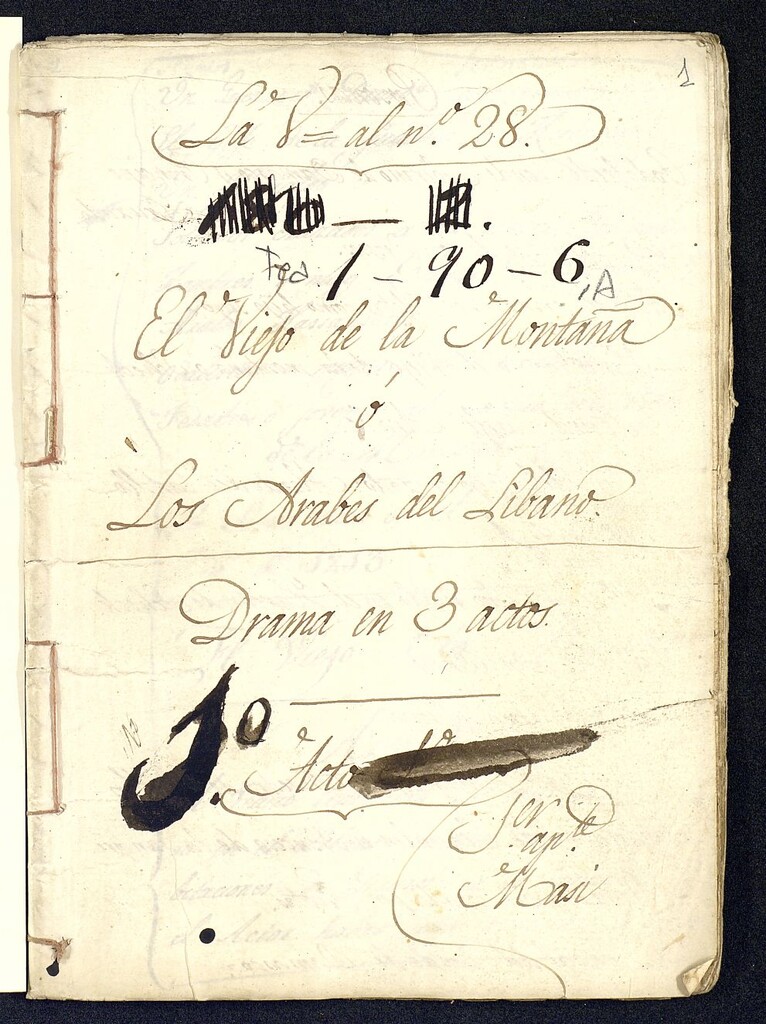 1
La V= al n.º 28.
Tea 1-90-6, A
El Viejo de la Montaña
ó
Los Arabes del Libano.
Drama en 3 actos.
1º
Acto 1º
1er ap.te
Masi